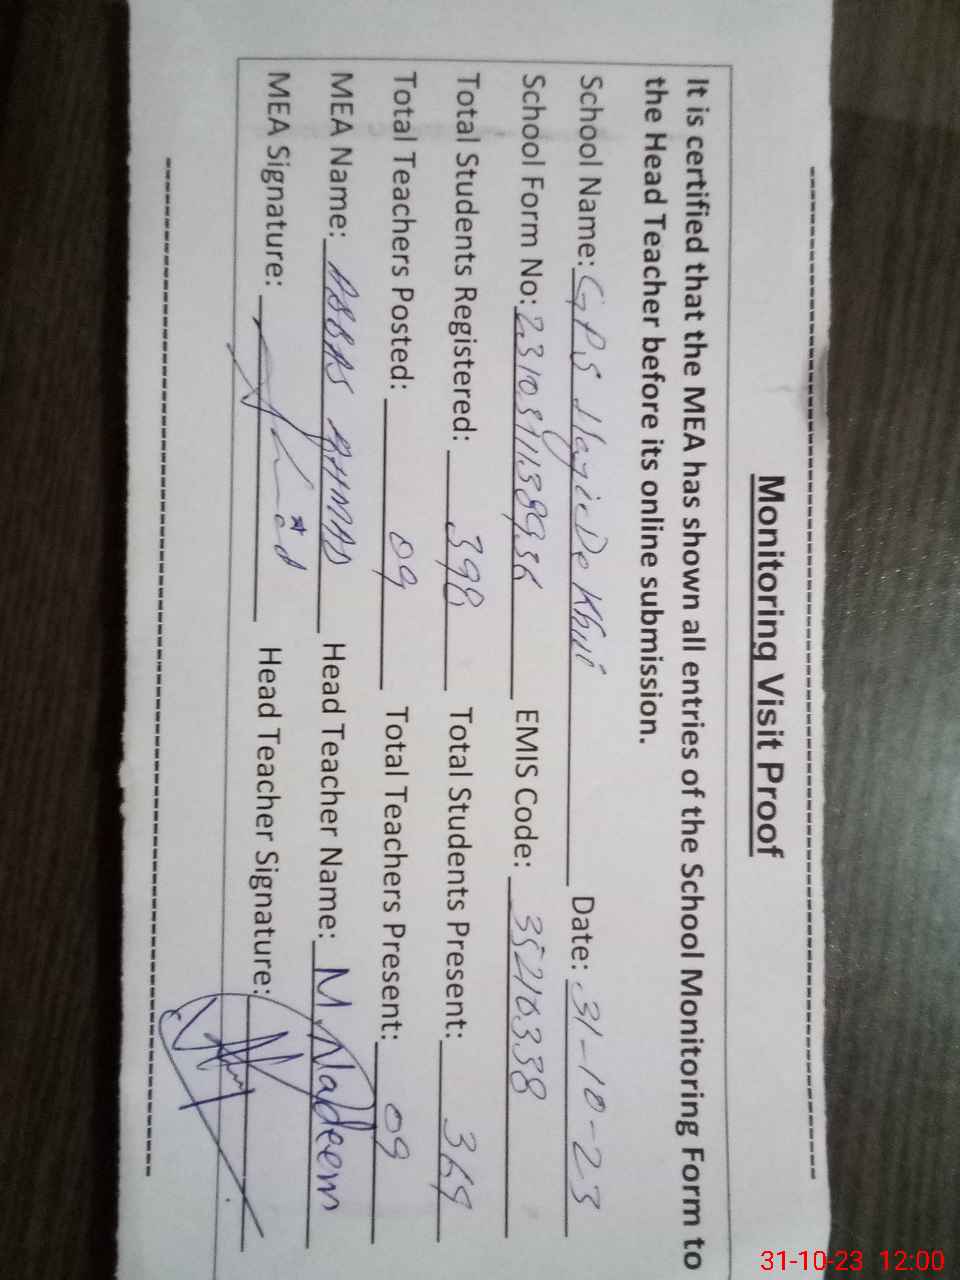 Monitoring Visit Proof
It is certified that the MEA has shown all entries of the School Monitoring Form to
the Head Teacher before its online submission.
School Name: GPS Date: 31-10-23
School Form No: EMIS Code: 35210338
Total Students Registered: 398 Total Students Present: 369
Total Teachers Posted: 09 Total Teachers Present: 09
MEA Name: ABBAS AHMAD Head Teacher Name: M Nadeem
MEA Signature: Head Teacher Signature:
31-10-23 12:00